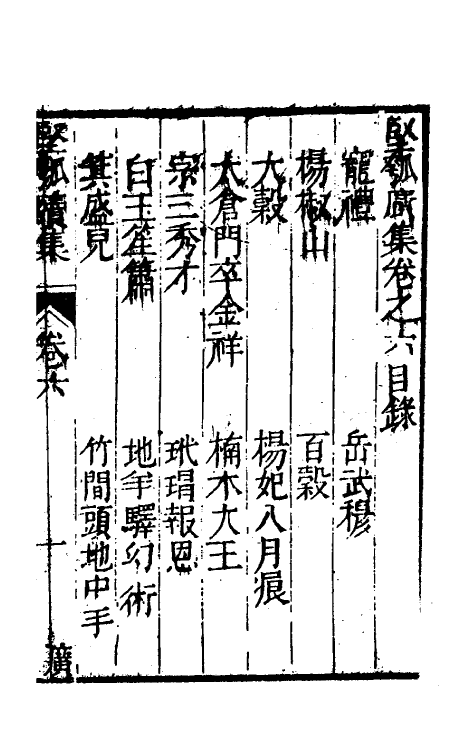 堅瓠廣集卷之六目錄
竈禮　岳武穆
楊椒山　百穀
大穀　楊妃入月痕
太倉門卒金祥　楠木大王
宗三秀才　玳瑁報恩
白玉笙簫　地羊驛幻術
箕盛兒　竹間頭地中手
堅瓠續集　卷六　一　廣